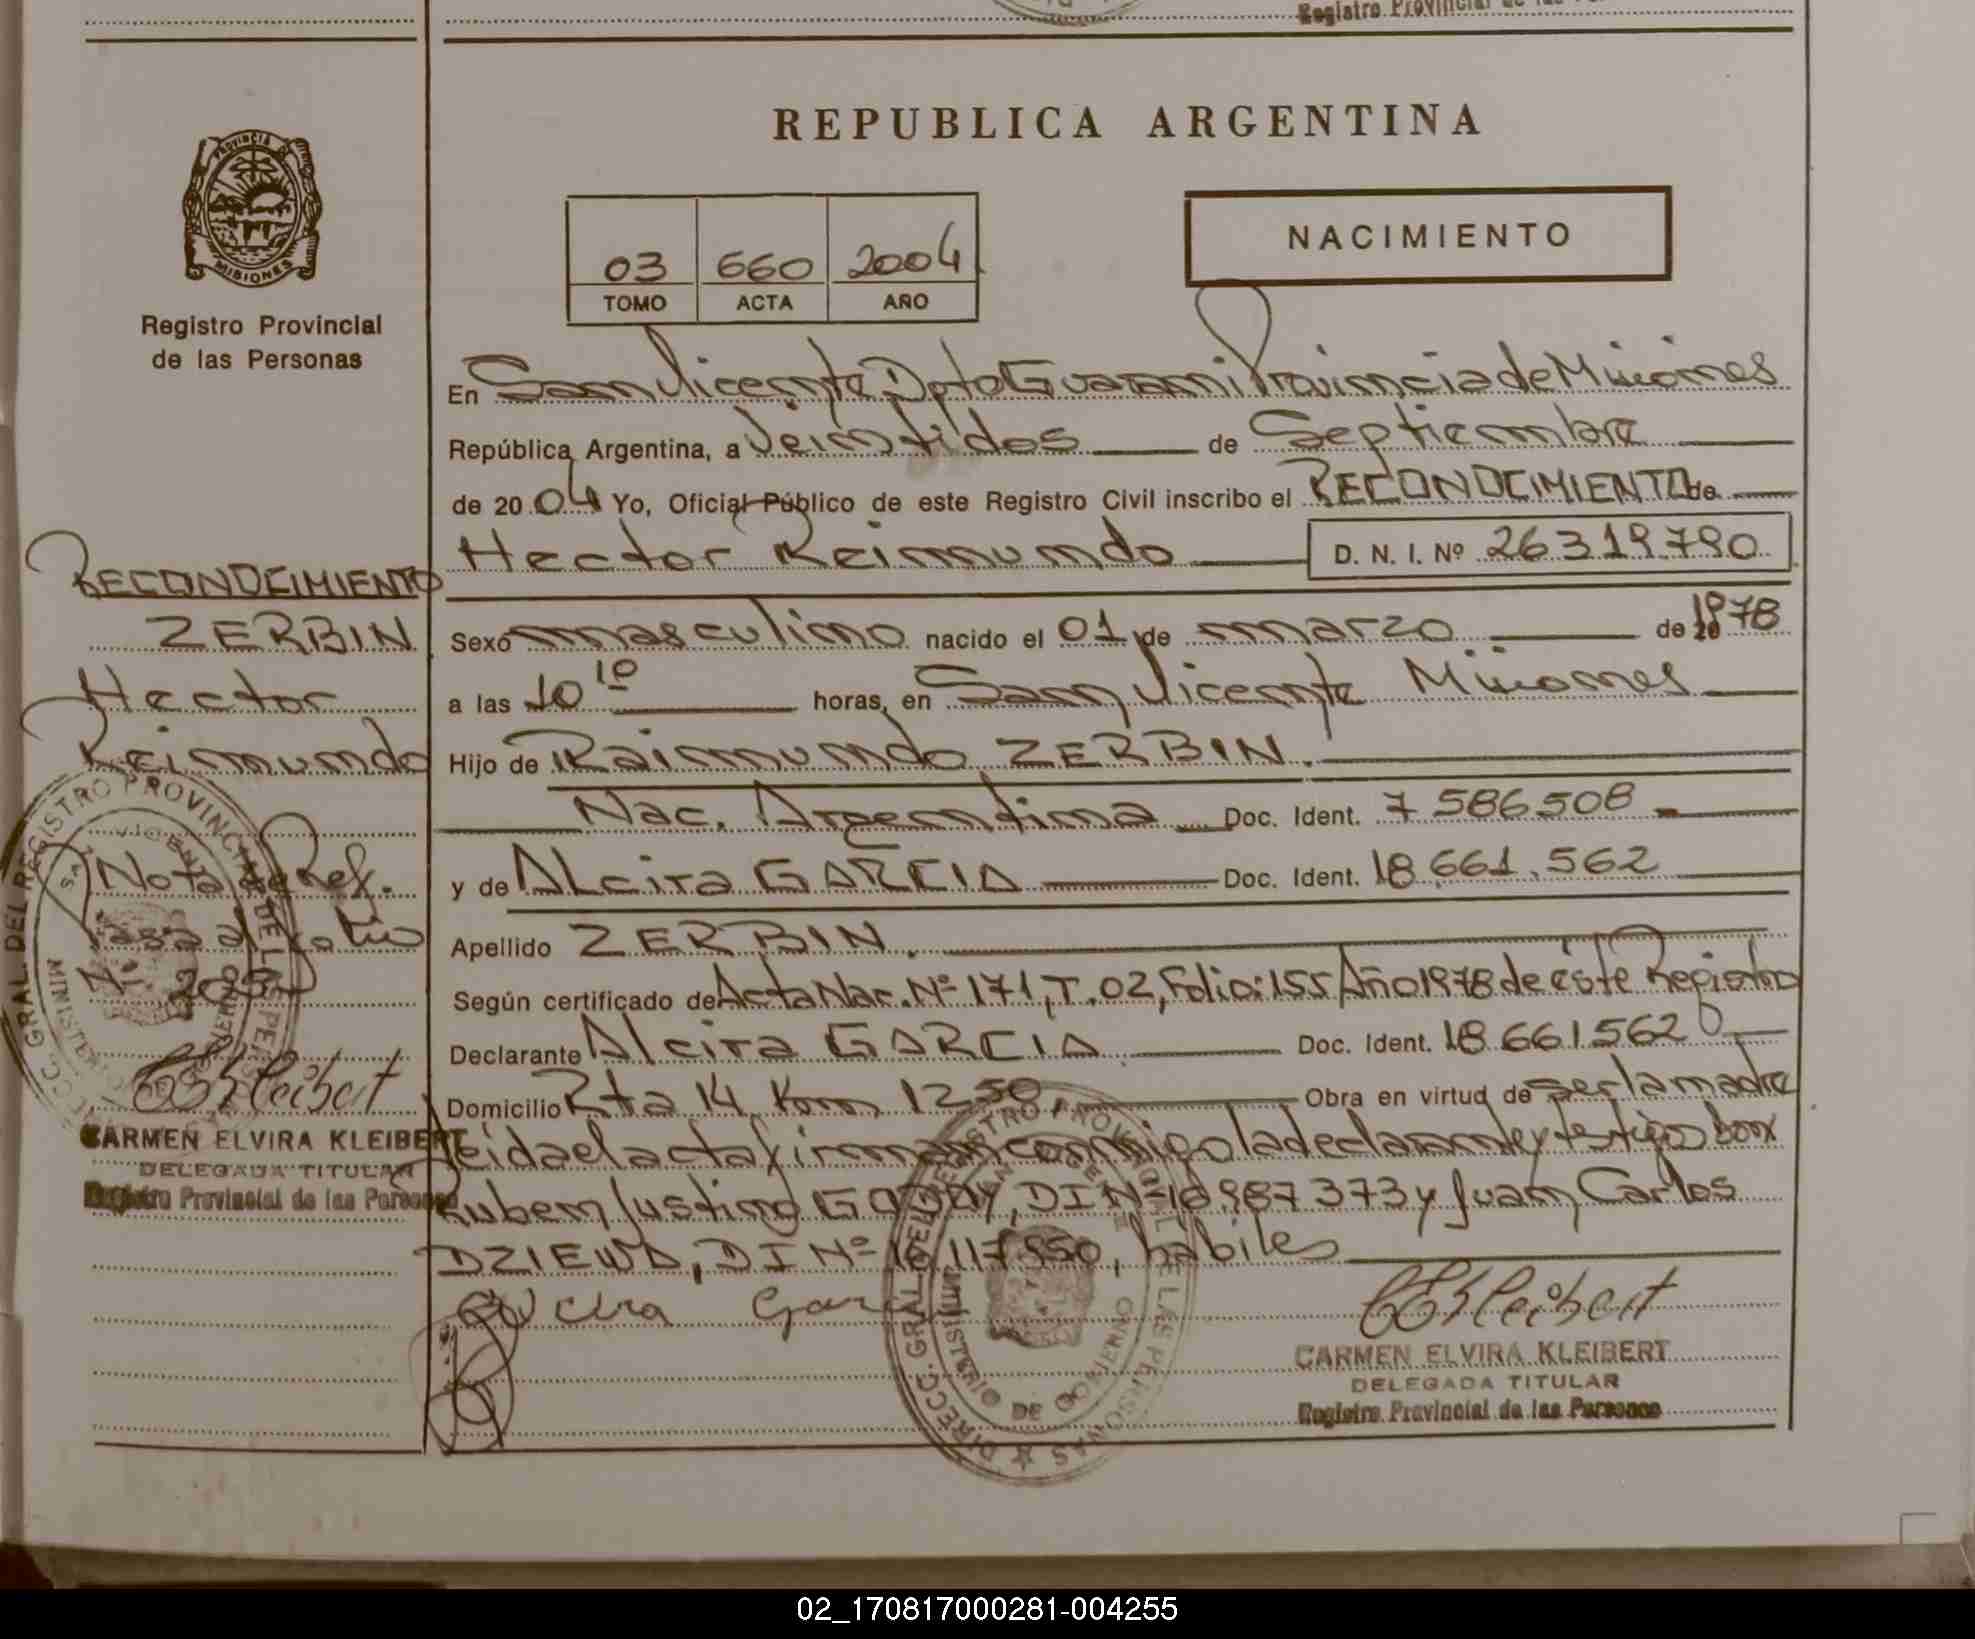 Registro Provincial de las
REPUBLICA ARGENTINA
PROVINCIA DE
MISIONES
Registro Provincial
de las Personas
03 660 2004
TOMO ACTA AÑO
NACIMIENTO
En San Vicente Dpto Guarani Provincia de Misiones
República Argentina, a Veintidos de Septiembre
de 2004 Yo, Oficial Público de este Registro Civil inscribo el RECONOCIMIENTO de
Hector Reimundo D. N. I. Nº 26319790
Sexo masculino nacido el 01 de marzo de 1978
a las 10 10 horas, en San Vicente Misiones
Hijo de Raimundo ZERBIN.
Nac. Argentina Doc. Ident. 7 586508
y de ALcira GARCIA Doc. Ident. 18.661.562
Apellido ZERBIN.
Según certificado de Acta Nac. Nº 171, T. 02, Folio: 155 Año 1978 de éste Registro
Declarante Alcira GARCIA Doc. Ident. 18 661562
Domicilio Rta 14 Km 1250, Obra en virtud de ser la madre
leida el acta firman conmigo la declarante y testigos
Ruben Justino GODOY, DI Nº 16.987 373 y Juan Carlos
DZIEWA, DI Nº 117950, habiles
Alcira Garcia
CEKleibert
CARMEN ELVIRA KLEIBERT
DELEGADA TITULAR
Registro Provincial de las Personas
DIRECC. GRAL. DEL REGISTRO PROVINCIAL DE LAS PERSONAS
MINISTERIO DE GOBIERNO
RECONOCIMIENTO
ZERBIN
Hector
Reimundo
Nota de Ref.
Nº
CEKleibert
CARMEN ELVIRA KLEIBERT
DELEGADA TITULAR
Registro Provincial de las Personas
DIRECC. GRAL. DEL REGISTRO PROVINCIAL DE LAS PERSONAS
SAN VICENTE
MINISTERIO DE GOBIERNO
02_170817000281-004255